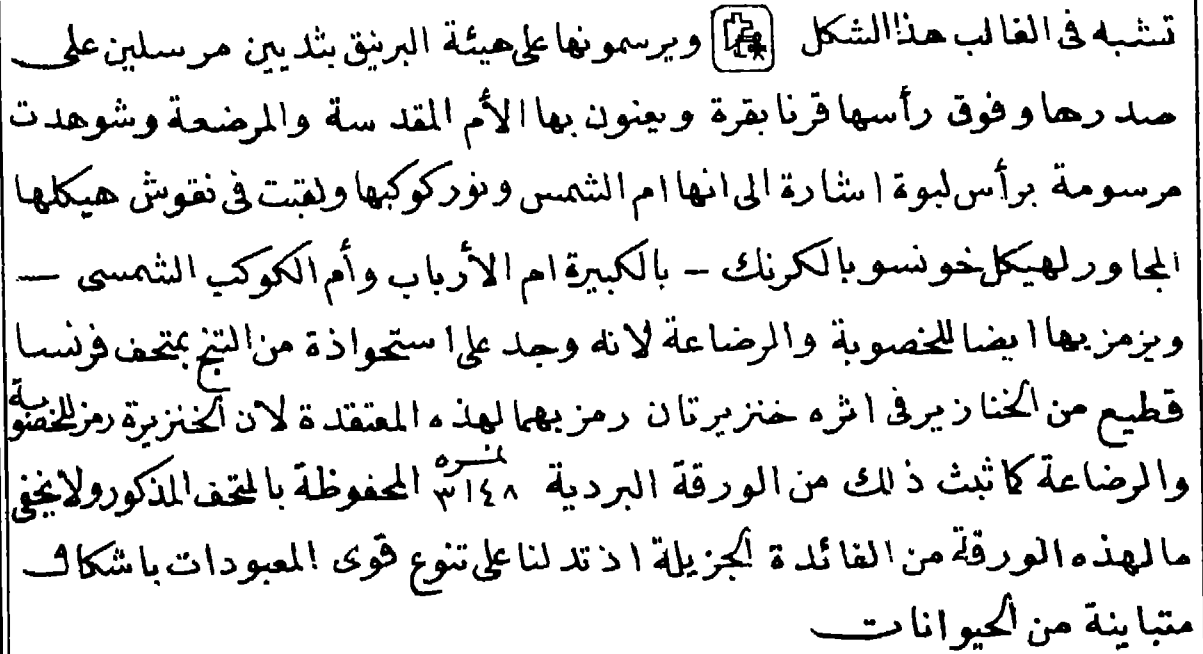 تشبه فى الغالب هذا الشكل ويرسمونها على هيئة البرنيق بثديين مرسلين على
صدرها وفوق رأسها قرنا بقرة ويعنون بها الأم المقدسة والمرضعة وشوهدت
مرسومة برأس لبوة اشارة الى انها ام الشمس ونور كوكبها ولقبت فى نقوش هيكلها
المجاور لهيكل خونسو بالكرنك – بالكبيرة ام الأرباب وأم الكوكب الشمسى —
ويزمز بها ايضا للخصوبة والرضاعة لانه وجد على استحواذة من التنج بمتحف فرنسا
قطيع من الخنازير فى اثره خنزيرتان رمز بهما لهذه المعتقدة لان الخنزيرة رمز للخصوبة
والرضاعة كما ثبث ذلك من الورقة البردية نمره ٣١٤٨ المحفوظة بالمتحف المذكور ولا يخفى
ما لهذه الورقة من الفائدة الجزيلة اذ تدلنا على تنوع قوى المعبودات باشكال
متباينة من الحيوانات